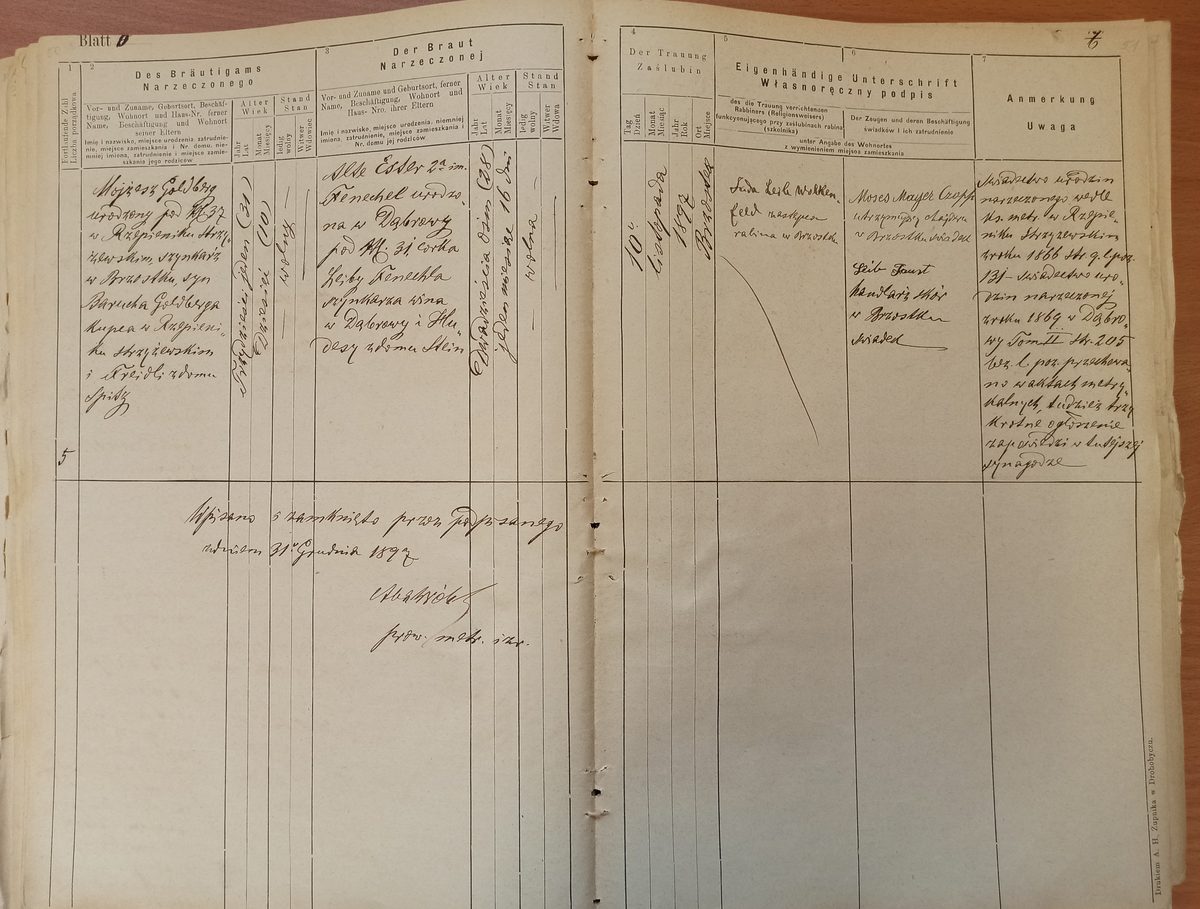 Blatt
1
2
3
Des Bräutigams
Narzeczonego
Der Braut
Narzeczonej
Fortlaufende Zahl
Liczba porządkowa
Vor- und Zuname, Geburtsort, Beschäf-
tigung, Wohnort und Haus-Nr. ferner
Name, Beschäftigung und Wohnort
seiner Eltern
Imię i nazwisko, miejsce urodzenia zatrudnie-
nie, miejsce zamieszkania i Nr. domu, nie-
mniej imiona, zatrudnienie i miejsce zamie-
szkania jego rodziców
Alter
Wiek
Jahr
Lat
Monat
Miesięcy
Stand
Stan
ledig
wolny
Witwer
Wdowiec
Vor- und Zuname und Geburtsort, ferner
Name, Beschäftigung, Wohnort und
Haus-Nro. ihrer Eltern
Imię i nazwisko, miejsce urodzenia, niemniej
imiona, zatrudnienie, miejsce zamieszkania i
Nr. domu jej rodziców
Alter
Wiek
Jahr
Lat
Monat
Miesięcy
Stand
Stan
ledig
wolny
Witwer
Wdowa
5
Mojżesz Goldberg
urodzony pod № 37
w Rzepieniku strzy-
żewskim, szynkarz
w Brzostku, syn
Barucha Goldberga
kupca w Rzepieni-
ku strzyżewskim
i Freidli z domu
Spitz
Trzydzieści jeden (31)
Dziesięć (10)
wolny
Alte Ester 2a im.
Fenechel urodzo-
na w Dąbrowy
pod № 31, córka
Leiby Fenechla
szynkarza wina
w Dąbrowy i Hu-
desy z domu Stein
Dwadzieścia osiem (28)
jeden miesiąc 16 dni
wolna
Wpisano i zamknięto przez podpisanego
z dniem 31. Grudnia 1897
prow. metr. izr.
4
5
6
7
7
Der Trauung
Zaślubin
Tag
Dzień
Monat
Miesiąc
Jahr
Rok
Ort
Miejsce
Eigenhändige Unterschrift
Własnoręczny podpis
des die Trauung verrichtenden
Rabbiners (Religionsweisers)
funkcyonującego przy zaślubinach rabina
(szkolnika)
Der Zeugen und deren Beschäftigung
świadków i ich zatrudnienie
unter Angabe des Wohnortes
z wymienieniem miejsca zamieszkania
Anmerkung
Uwaga
10
listopada
1897
Brzostek
Juda Leib Wolken
feld zastępca
rabina w Brzostku
Moses Mayer
w Brzostku świadek
Leib Faust
handlarz skór
w Brzostku
świadek
Świadectwo urodzin
narzeczonego wedle
ks. metr. w Rzepie-
niku strzyżewskim
z roku 1866 str. 9. l. poz.
131 – świadectwo uro-
dzin narzeczonej
z roku 1869 w Dąbro-
wy Tom II str. 205
bez l. poz. przechowa-
no w aktach metry-
kalnych, tudzież trzy
krotne ogłoszenie
zapowiedzi w tutejszej
synagodze
Drukiem A. H. Zupnika w Drohobyczu.